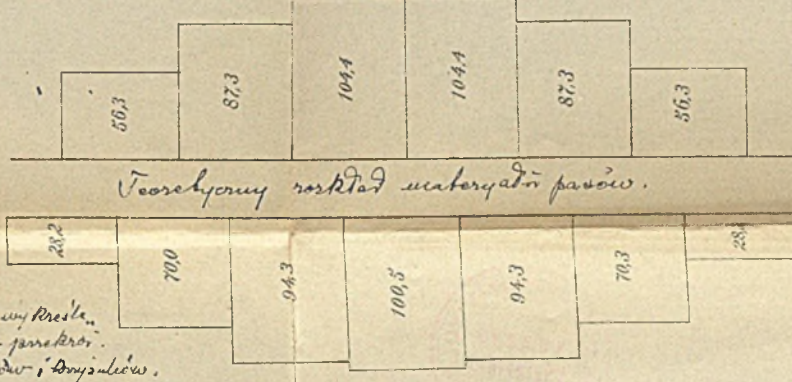 56,3 87,3 104,4 104,4 87,3 56,3
Teoretyczny rozkład materyałów pasów.
28,2 70,0 94,3 100,5 94,3 70,3 28,
wykreśle„
przekroi.
i